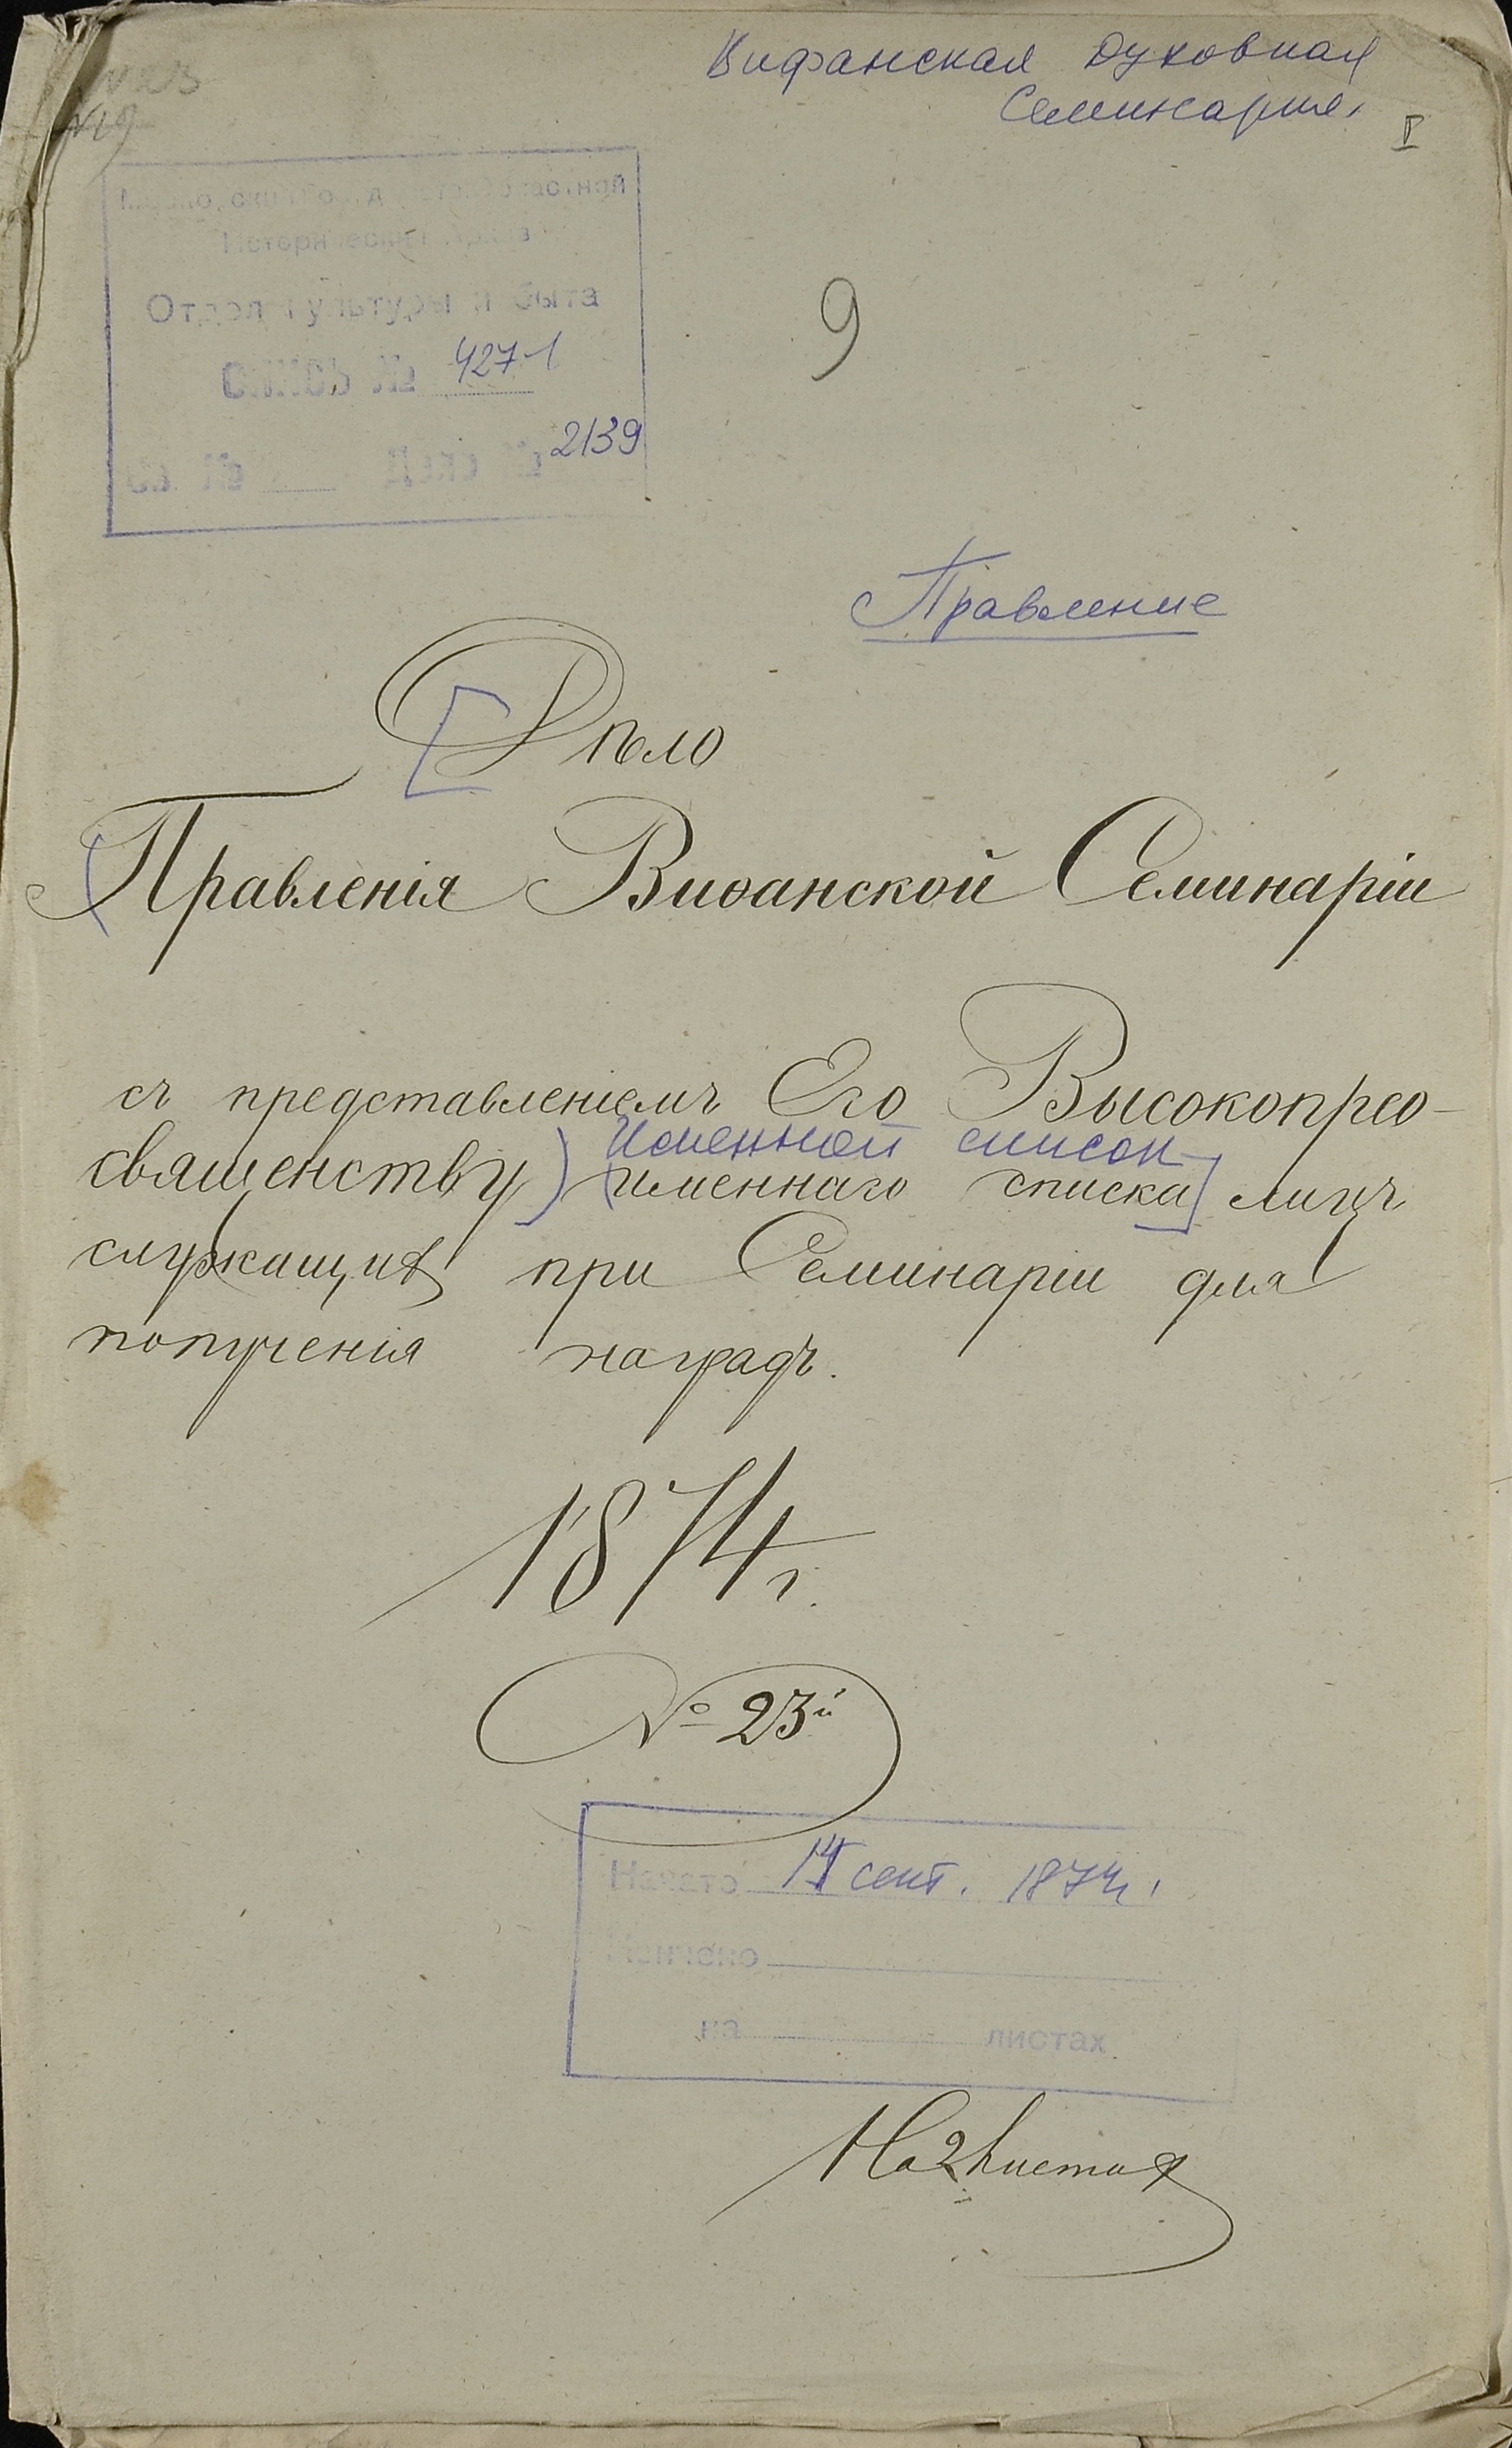 Вифанская Духовная
Семинария.
№ 23
№ 19
Московский Государств. Областной
Исторический Архив
Отдел культуры и быта
ОПИСЬ № 427-1
Св. № Дело № 2139
9
Правление
Дѣло
Правленія Виѳанской Семинаріи
съ представленіемъ Его Высокопрео-
священству) (именнаго списка] лицъ
Именной список
служащихъ при Семинаріи для
полученія наградъ.
1874 г.
№ 23й
Начато 14 сент. 1874 г.
Кончено
на листах
На 2 листах